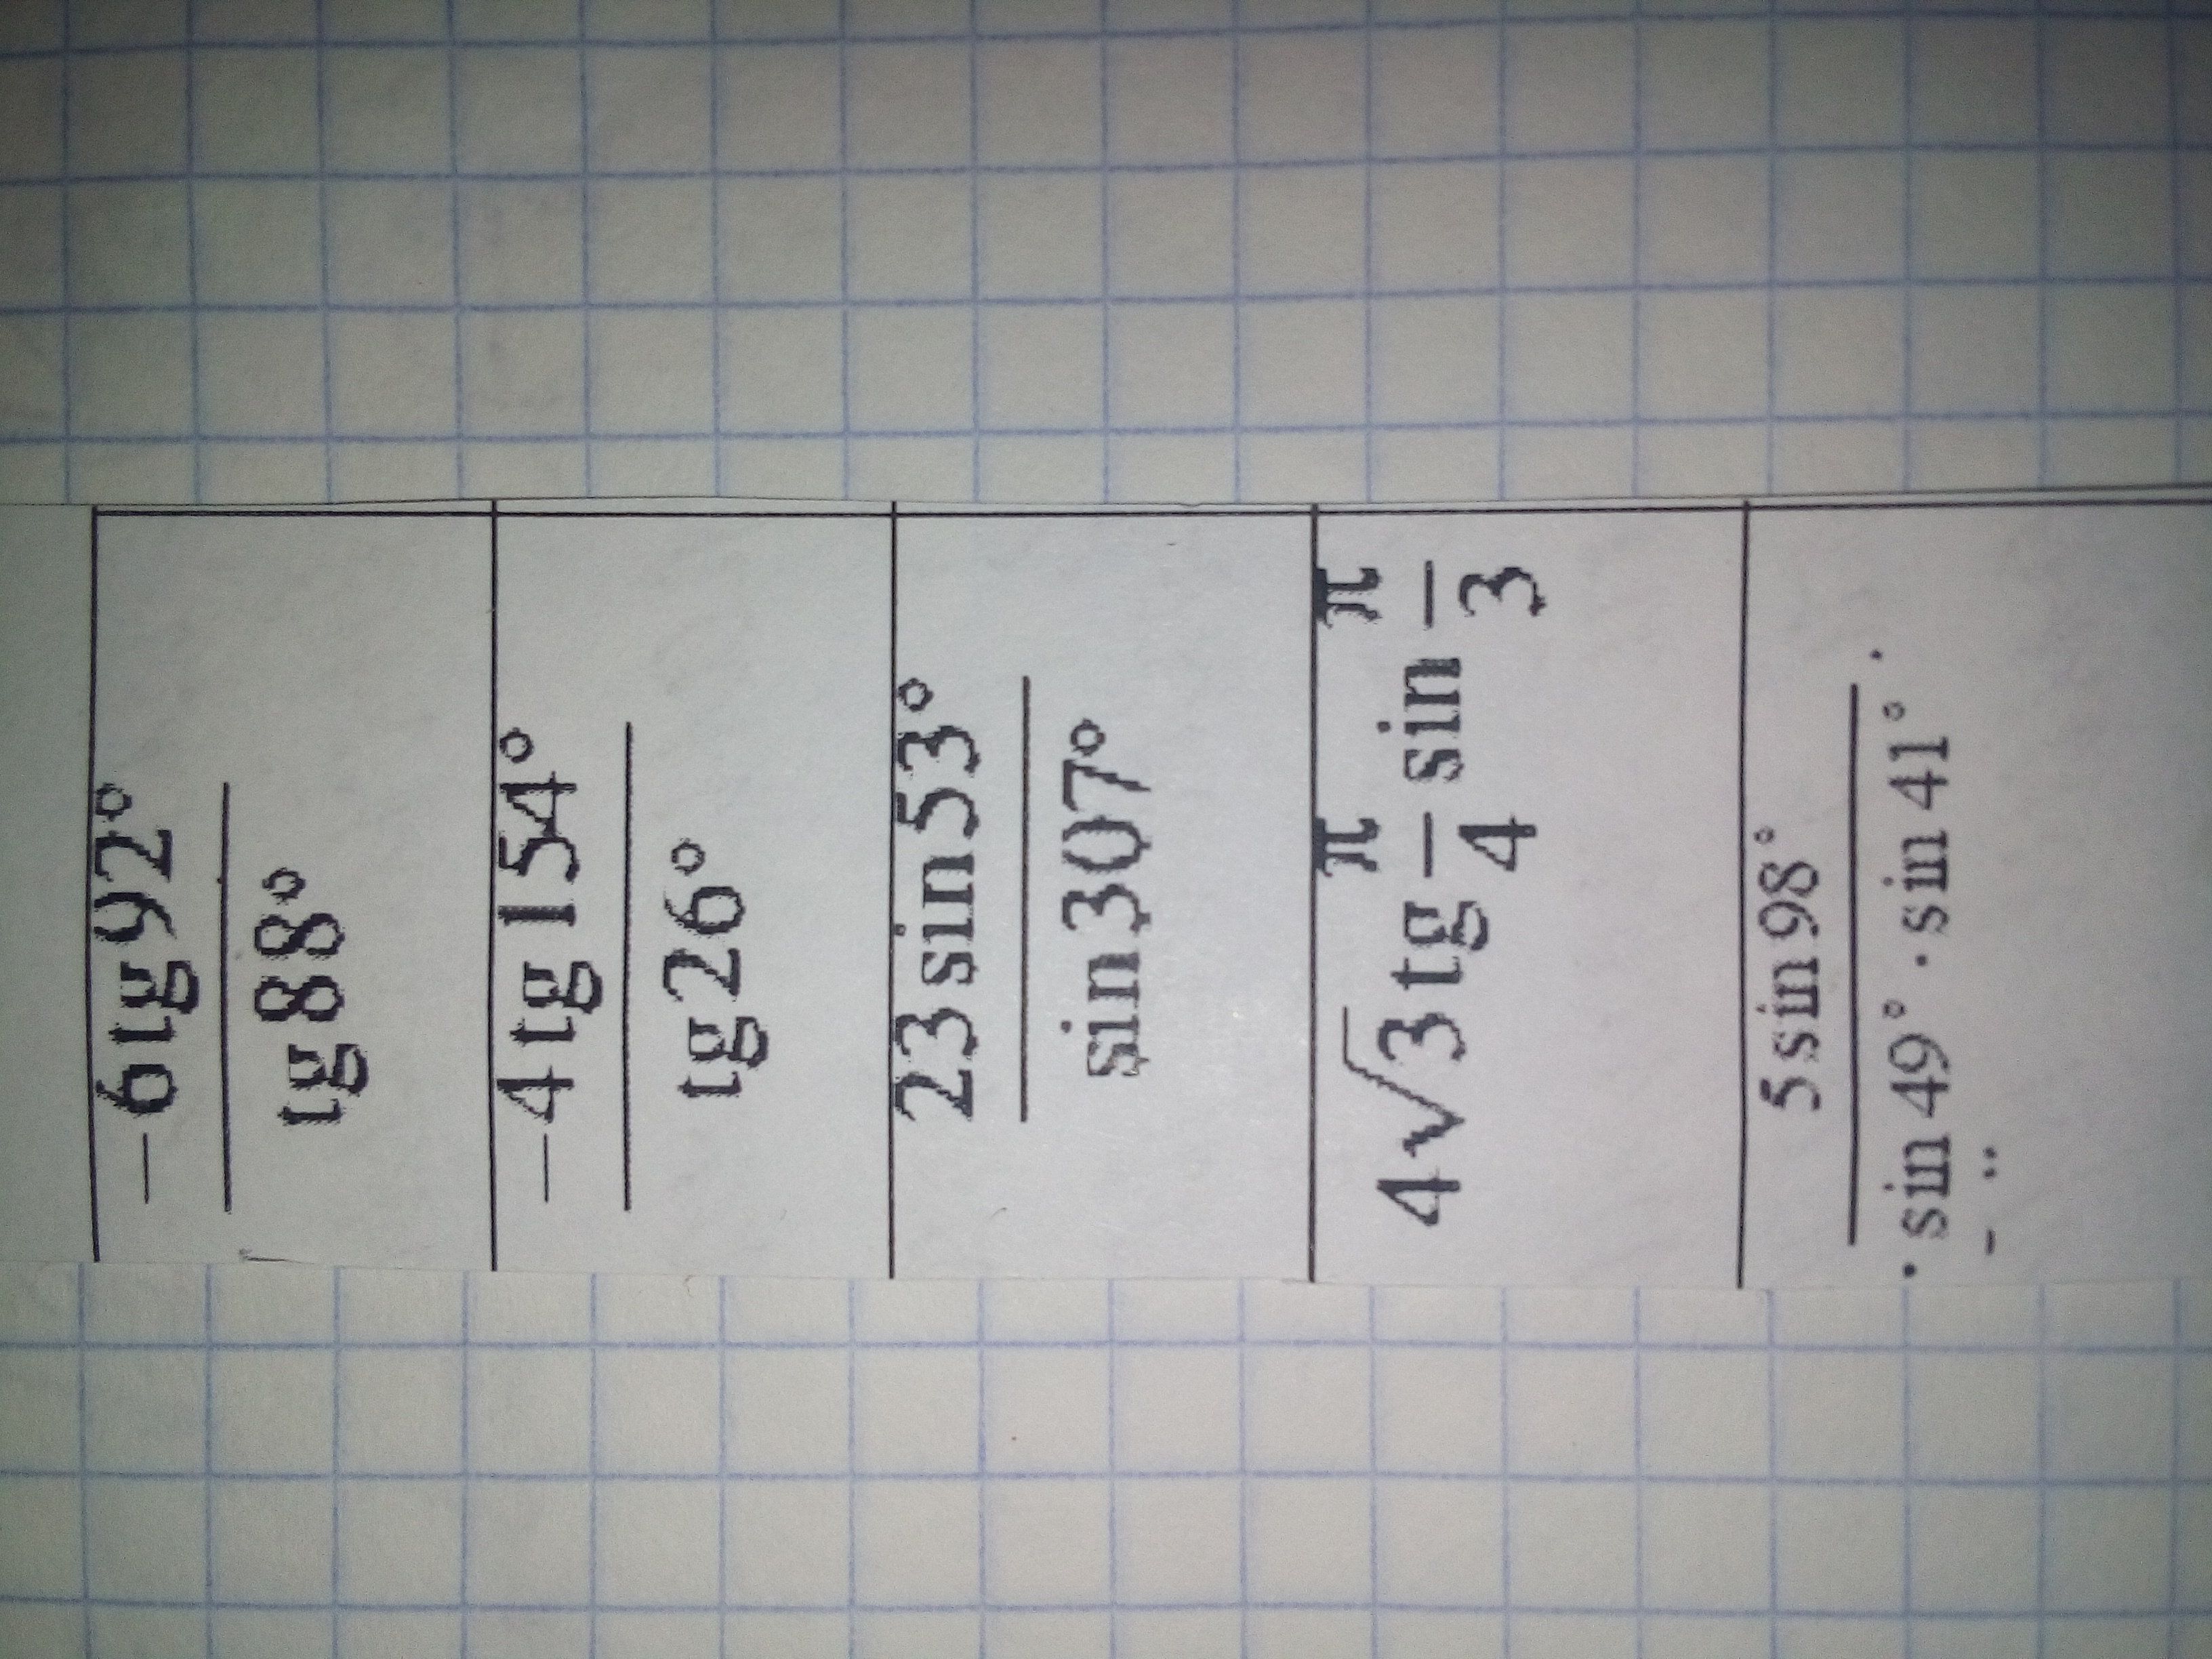 −6 tg 92°
tg 88°
−4 tg 154°
tg 26°
23 sin 53°
sin 307°
4√3 tg π/4 sin π/3
5 sin 98°
sin 49° · sin 41°